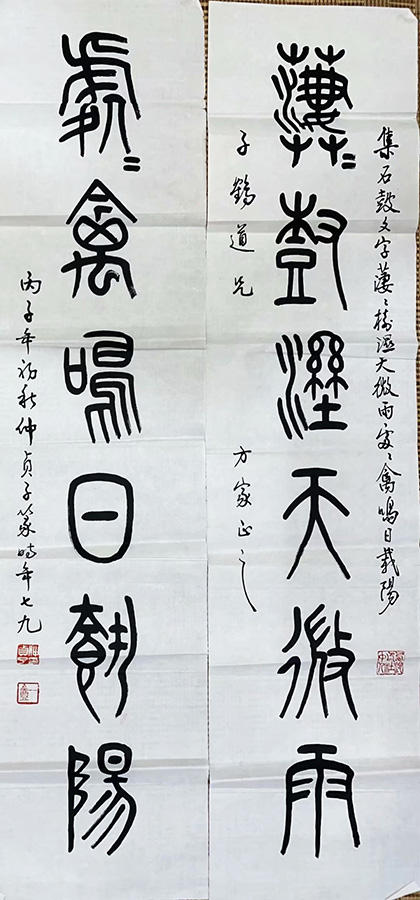 集石鼓文字樹溼天微雨處〻禽鳴日載陽
尌溼天微雨
子鶴道兄
方家正之
處〻禽鳴日載陽
丙子年初秋仲貞子篆時年七九